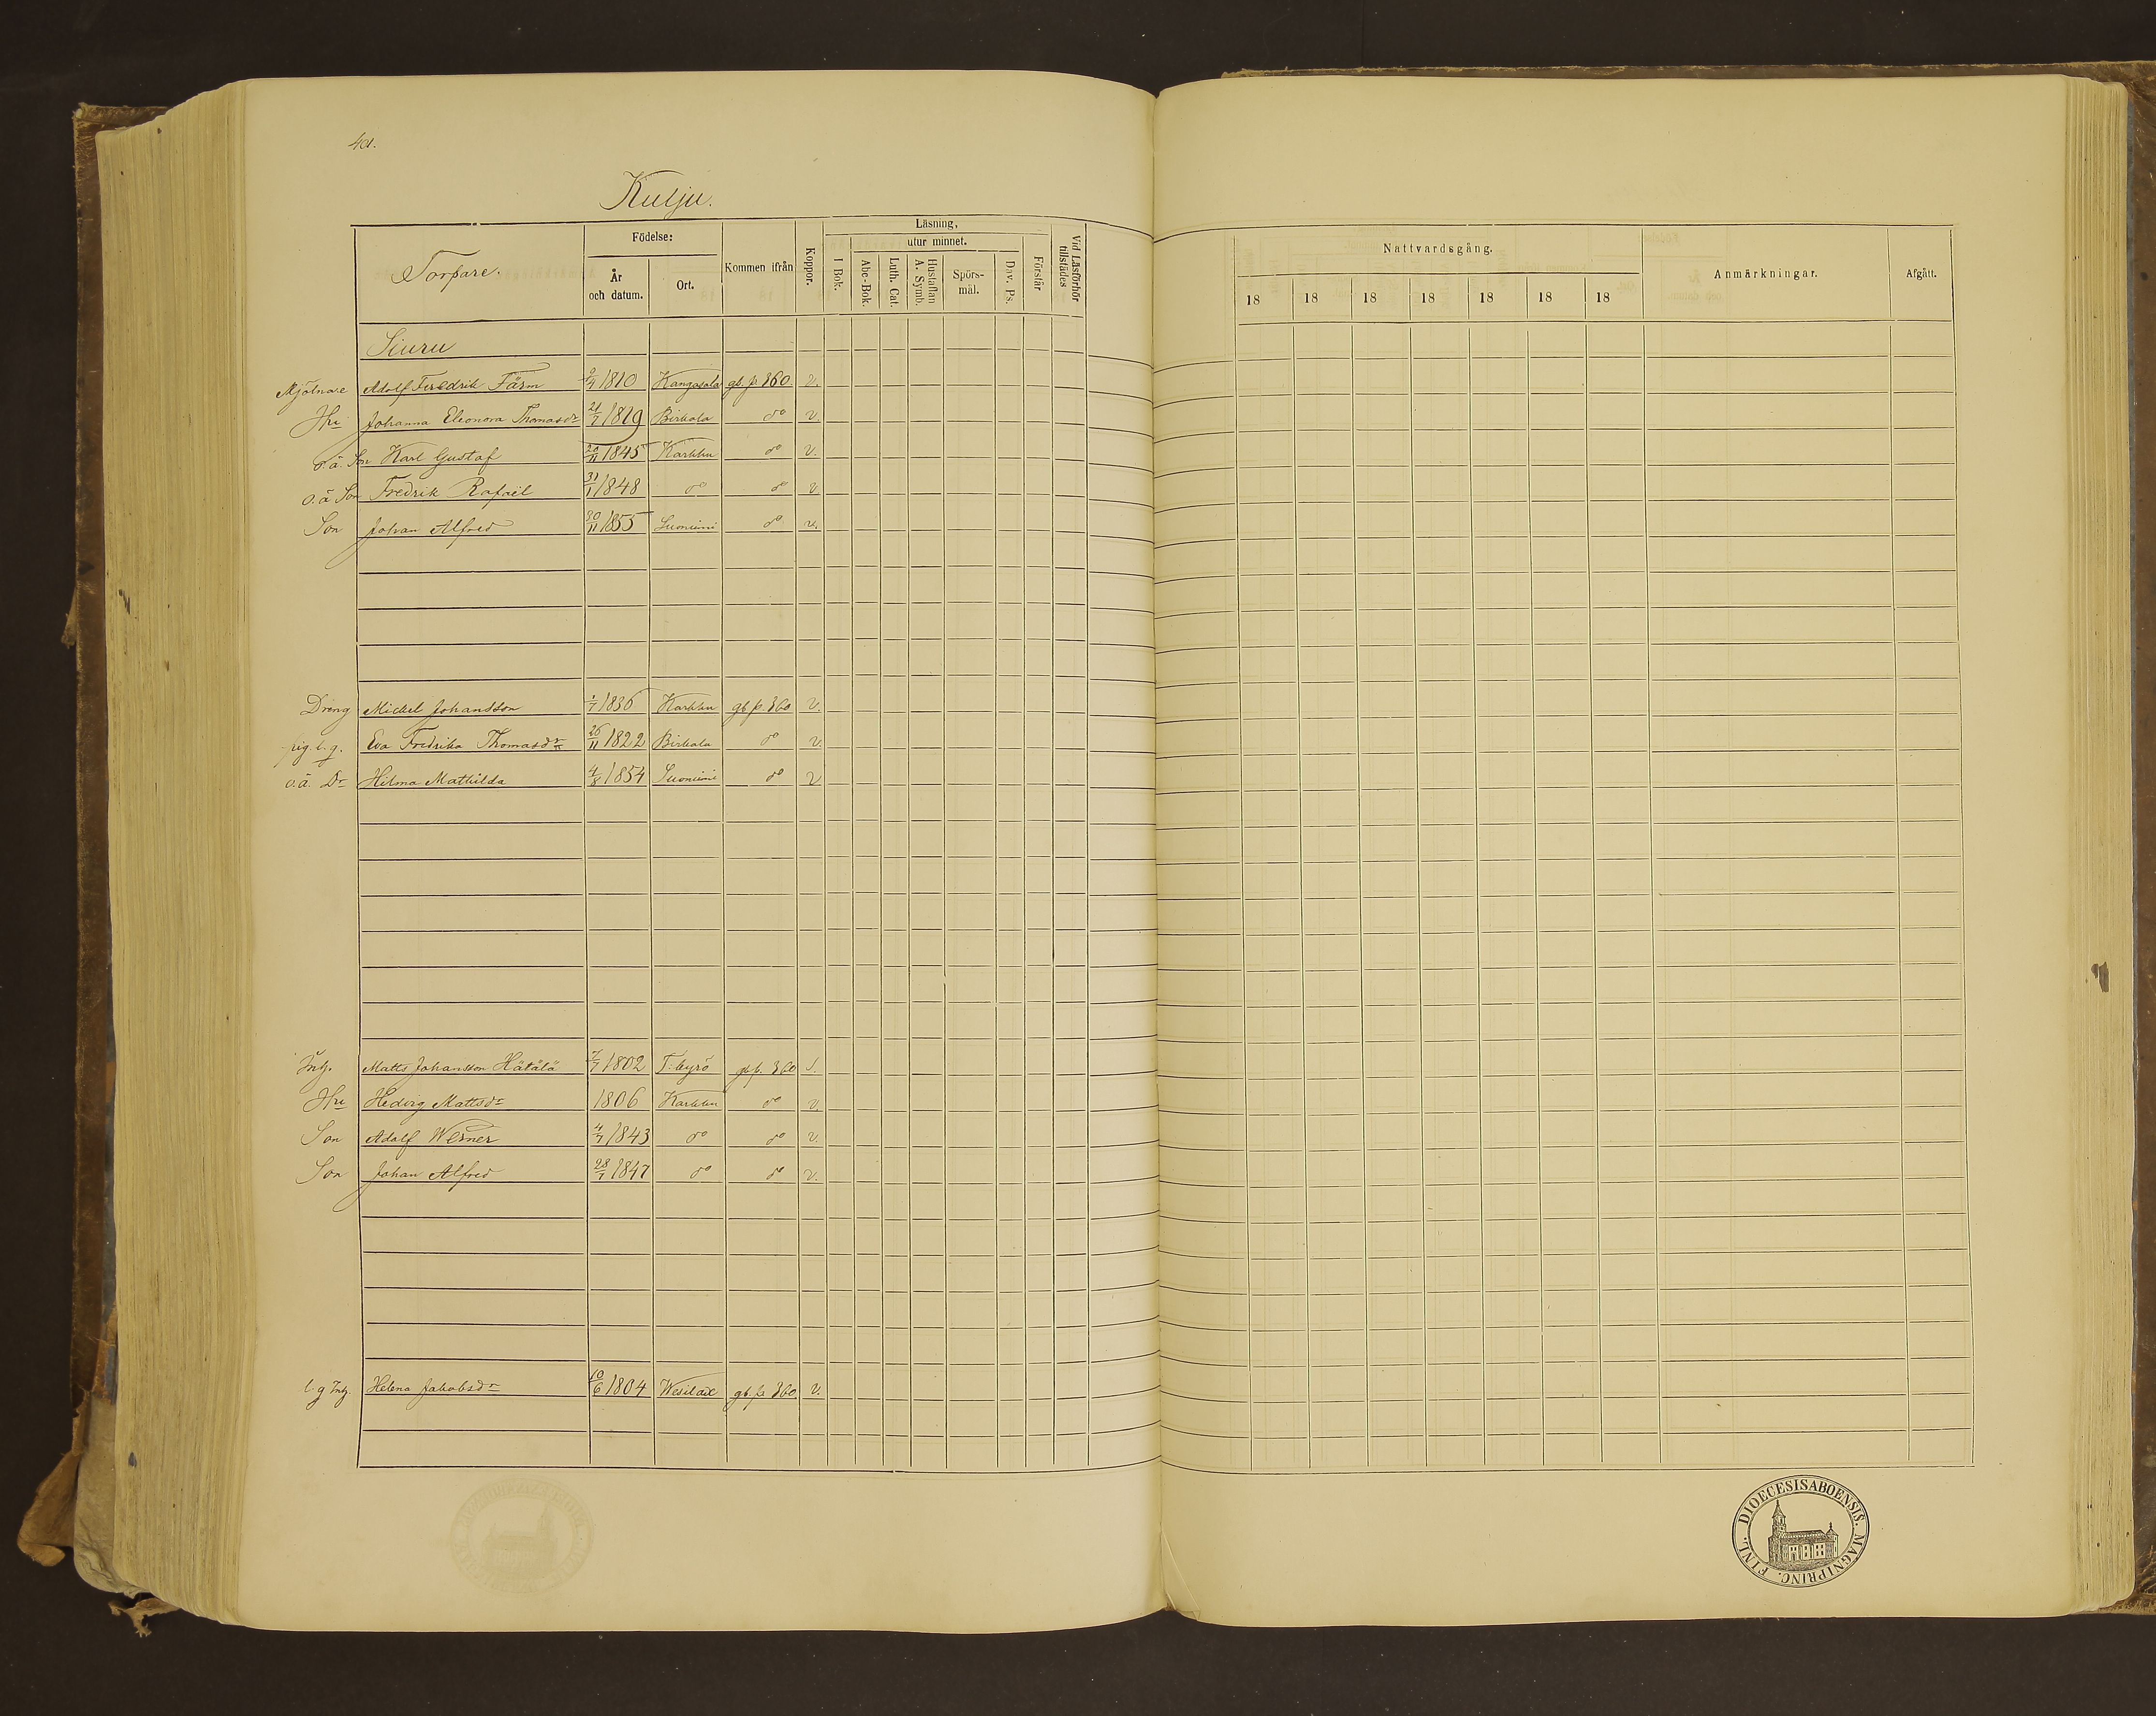 401.
Kulju.
Torpare.
Födelse:
År och datum.
Ort.
Kommen ifrån
Koppor.
Läsning,
utur minnet.
I Bok.
Abc-Bok.
Luth. Cat.
Hustaflan A. Symb.
Spörs-mål.
Dav. Ps.
Förstår
Vid Läsförhör tillstädes
Nattvardsgång.
18 18 18 18 18 18 18
Anmärkningar.
Afgått.
Siuru
Mjölnare Adolf Fredrik Färm 2/7 1810 Kangasala gb. p. 360. v.
Hu Johanna Eleonora Thomasdr 21/7 1819 Birkala do v.
o.ä. Son Karl Gustaf 20/11 1845 Karkku do v.
o.ä Son Fredrik Rafaël 31/1 1848 do do v
Son Johan Alfred 30/11 1855 Suoniemi do v.
Dreng Mickel Johansson 1/7 1836 Karkku gb p. 360 v.
pig. l. g. Eva Fredrika Thomasdr 26/11 1822 Birkala do v.
o.ä. Dr Hilma Mathilda 4/8 1854 Suoniemi do v
Inh. Matts Johansson Hätälä 7/7 1802 T. kyrö gb p. 360 s.
Hu Hedvig Mattsdr 1806 Karkku do v.
Son Adolf Werner 4/7 1843 do do v.
Son Johan Alfred 28/7 1847 do do v.
l. g Inh. Helena Jakobsdr 10/6 1804 Wesilax gb p 360 v.
DIOECESIS ABOENSIS. MAGNI PRINC. FINL.